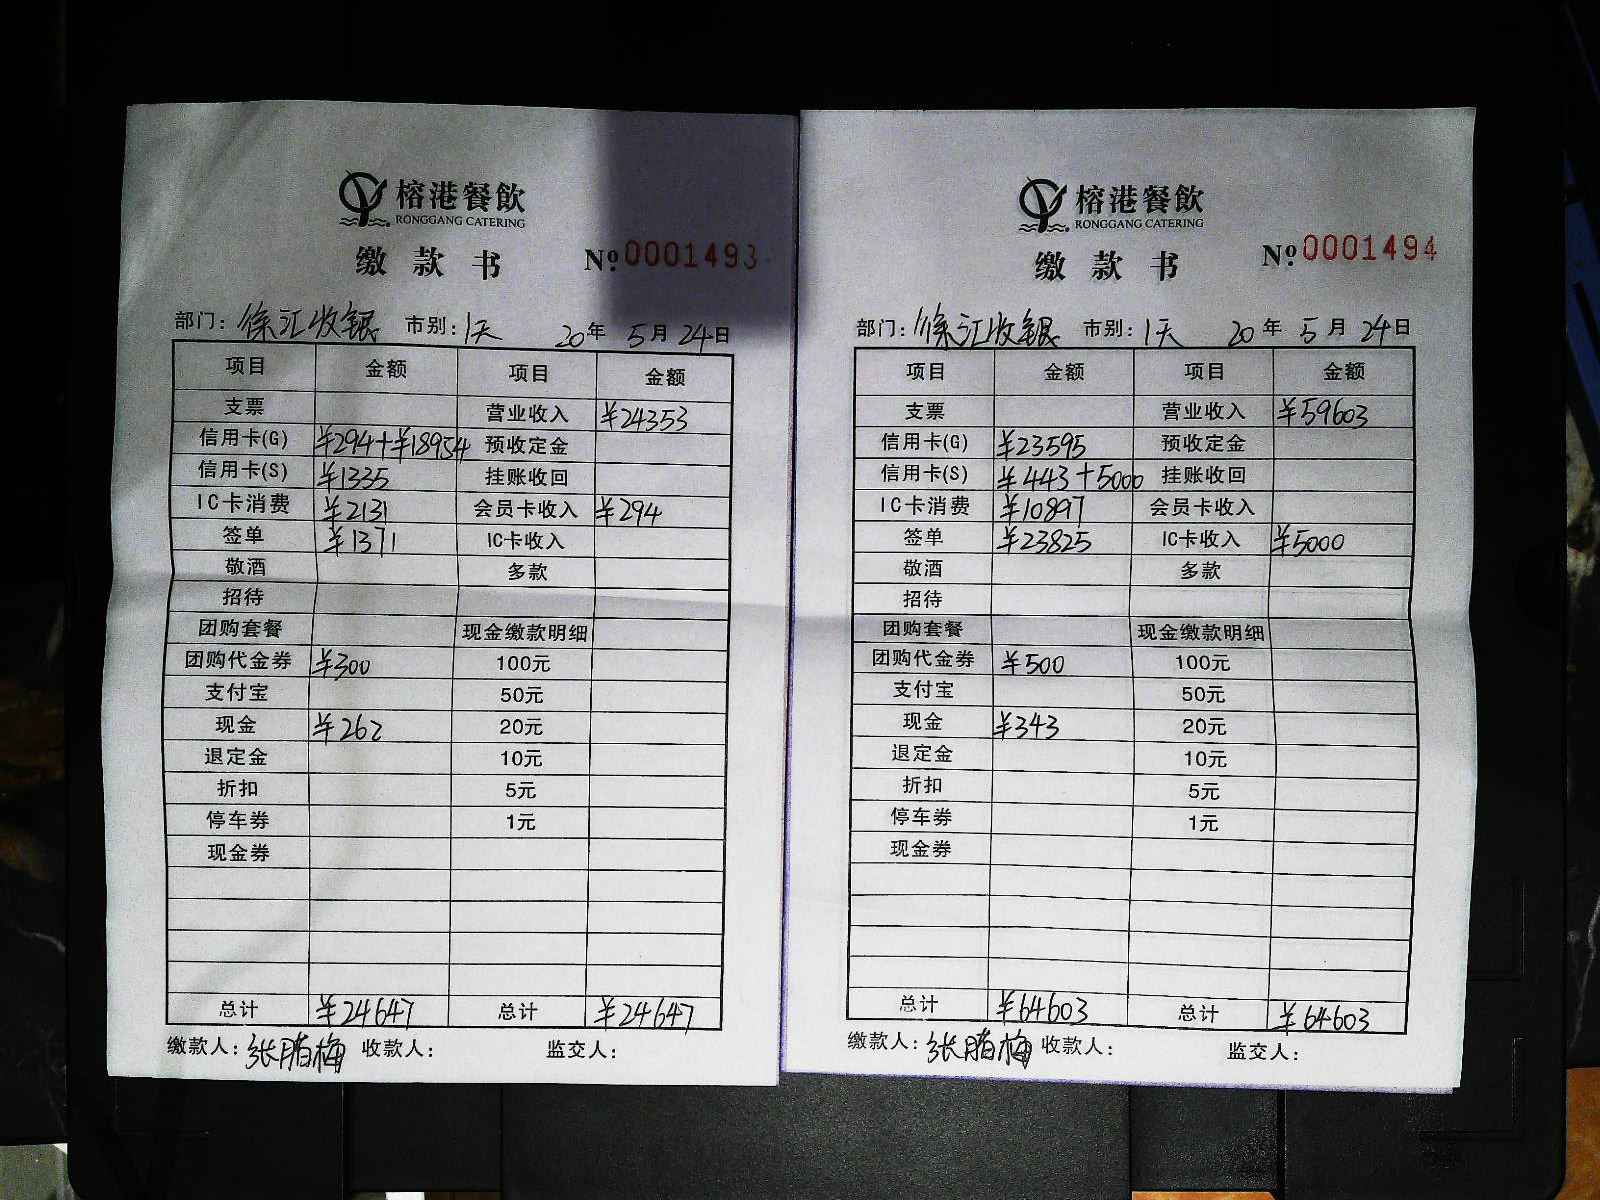 榕港餐飲
RONGGANG CATERING
缴款书 №0001493
部门：徐汇收银 市别：1天 20年5月24日
项目 金额 项目 金额
支票 营业收入 ¥24353
信用卡(G) ¥294+¥18954 预收定金
信用卡(S) ¥1335 挂账收回
IC卡消费 ¥2131 会员卡收入 ¥294
签单 ¥1371 IC卡收入
敬酒 多款
招待
团购套餐 现金缴款明细
团购代金券 ¥300 100元
支付宝 50元
现金 ¥262 20元
退定金 10元
折扣 5元
停车券 1元
现金券
总计 ¥24647 总计 ¥24647
缴款人：张腊梅 收款人： 监交人：
榕港餐飲
RONGGANG CATERING
缴款书 №0001494
部门：徐汇收银 市别：1天 20年5月24日
项目 金额 项目 金额
支票 营业收入 ¥59603
信用卡(G) ¥23595 预收定金
信用卡(S) ¥443+5000 挂账收回
IC卡消费 ¥10897 会员卡收入
签单 ¥23825 IC卡收入 ¥5000
敬酒 多款
招待
团购套餐 现金缴款明细
团购代金券 ¥500 100元
支付宝 50元
现金 ¥343 20元
退定金 10元
折扣 5元
停车券 1元
现金券
总计 ¥64603 总计 ¥64603
缴款人：张腊梅 收款人： 监交人：